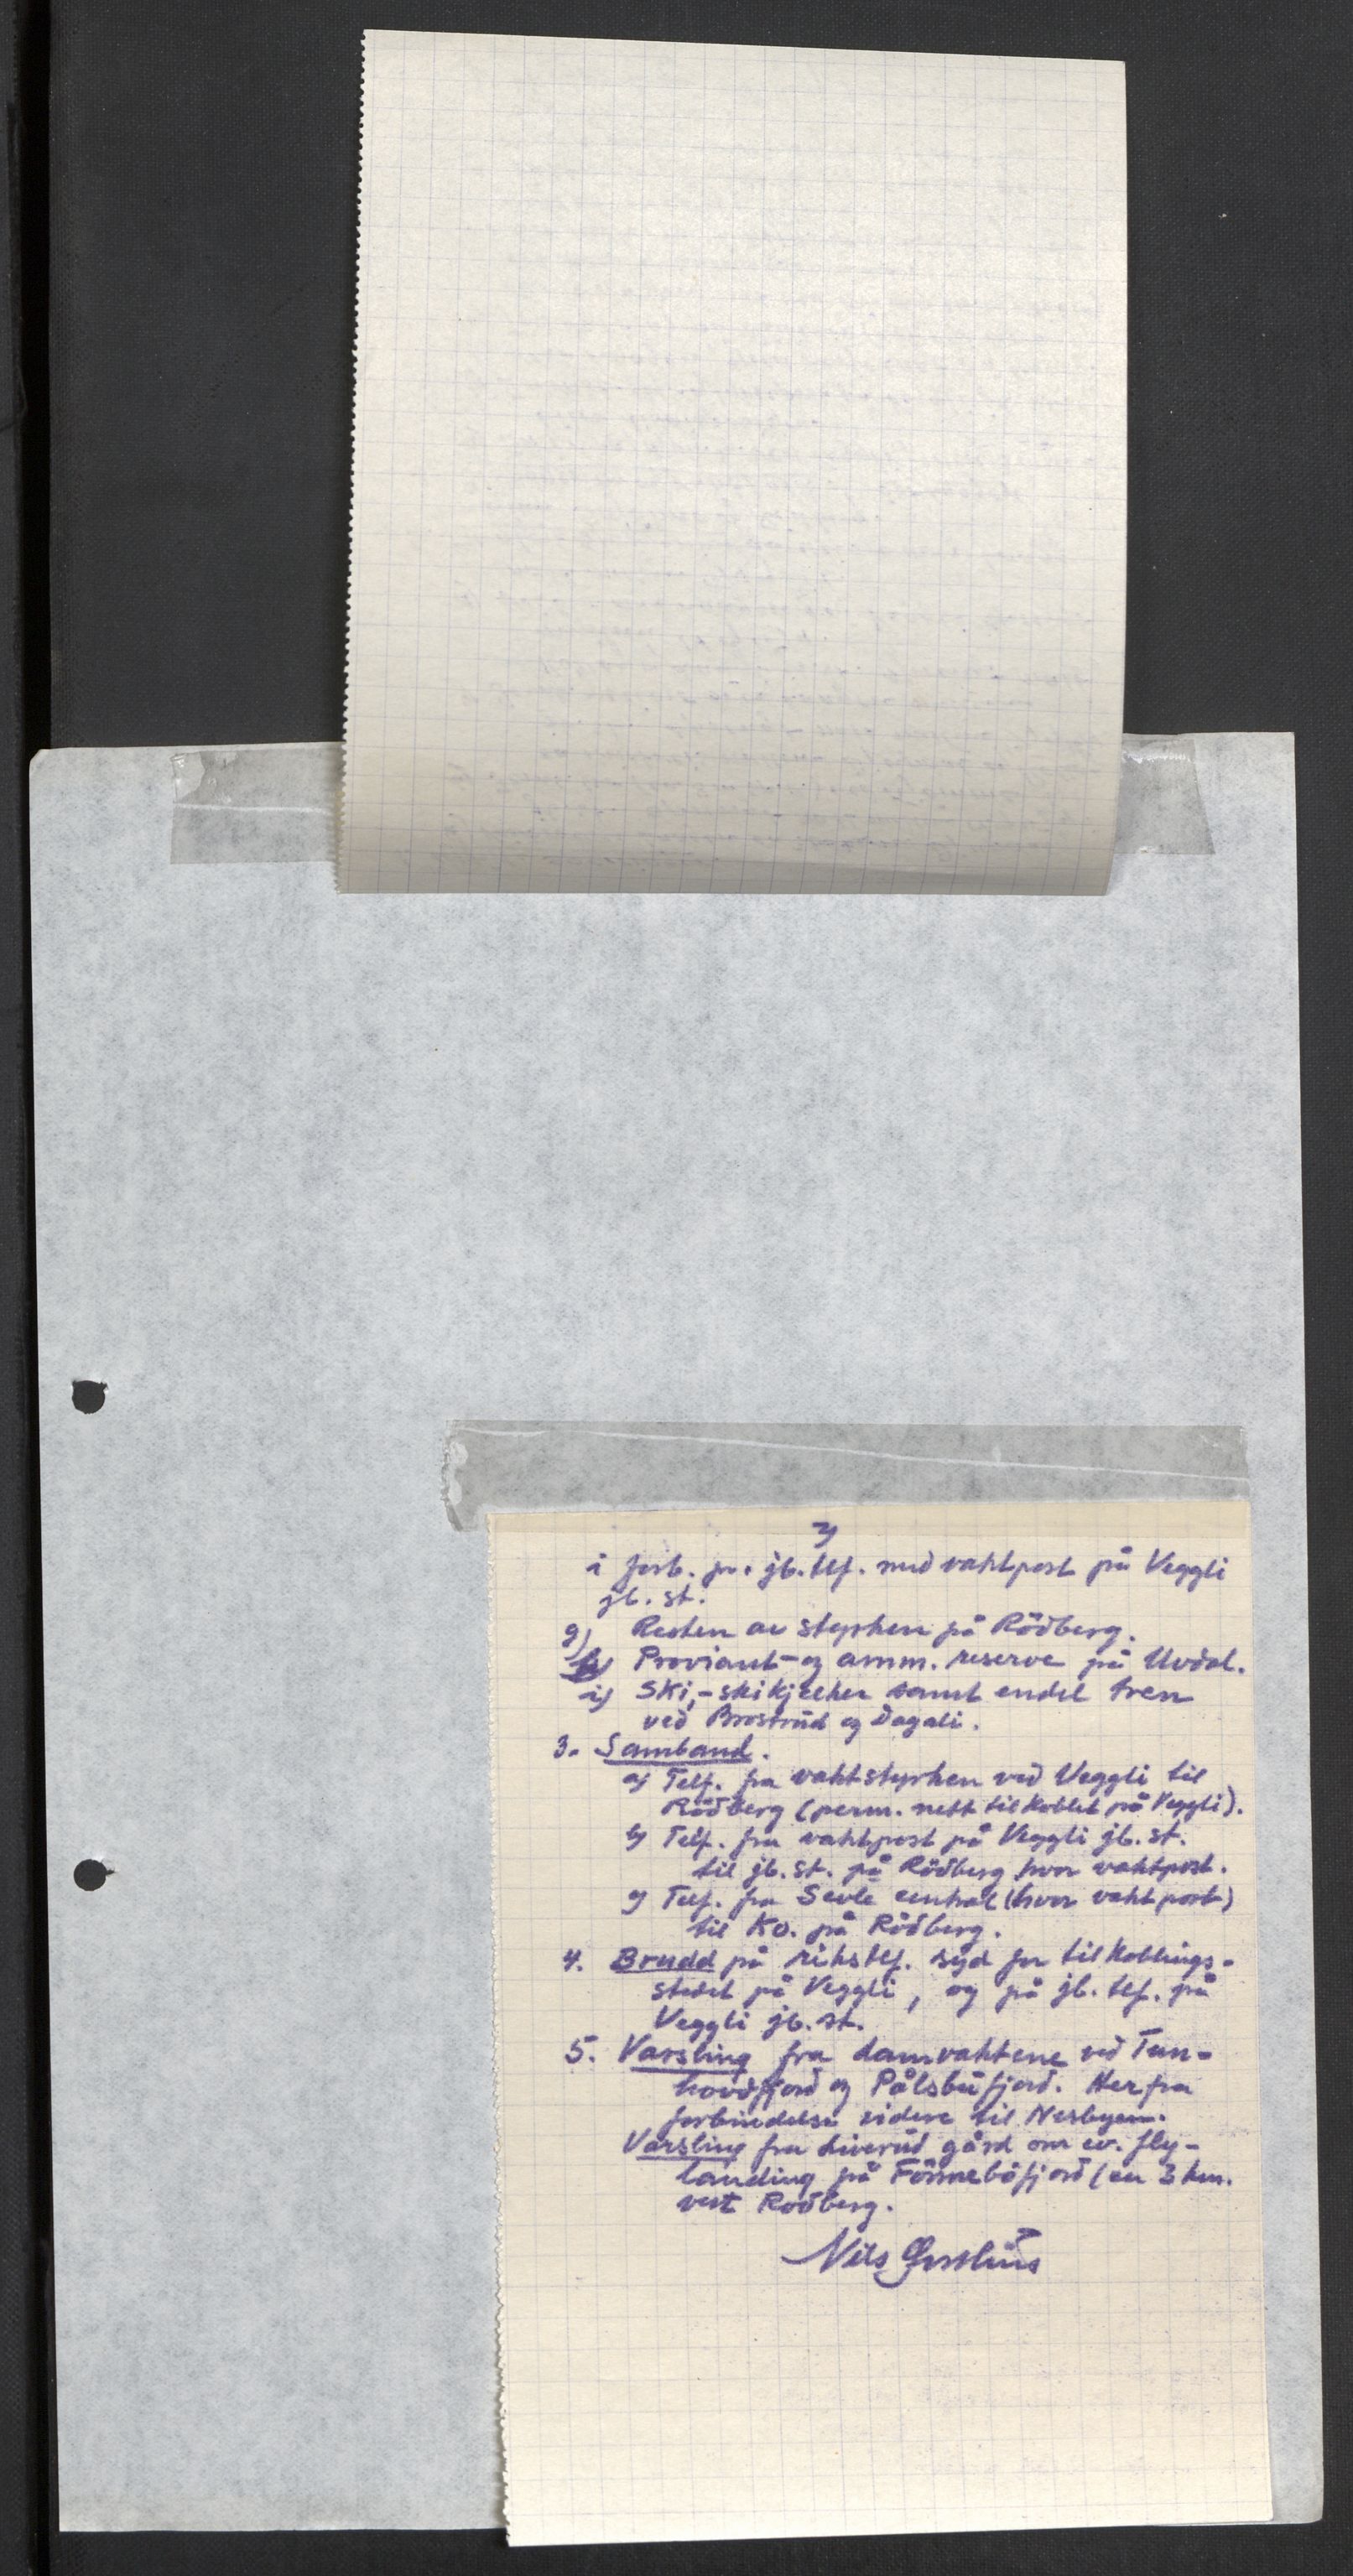 3)
i forb. pr. jb. tlf. med vaktpost på Veggli
jb. st.
g) Resten av styrken på Rödberg.
h) Proviant- og amm. reserve på Uvdal.
i) Ski, - skikjelker samt endel tren
ved Brostrud og Dagali.
3. Samband.
a) Telf. fra vaktstyrken ved Veggli til
Rödberg (perm. nett tilkoblet på Veggli).
b) Telf. fra vaktpost på Veggli jb. st.
til jb. st. på Rödberg hvor vaktpost.
c) Telf. fra Sevle central (hvor vaktpost)
til Ko. på Rödberg.
4. Brudd på rikstlf. syd for tilkoblings-
stedet på Veggli, og på jb. tlf. på
Veggli jb. st.
5. Varsling fra damvaktene ved Tun-
hovdfjord og Pålsbufjord. Herfra
forbindelse videre til Nesbyen.
Varsling fra Liverud gård om ev. fly-
landing på Fönneböfjord (ca 3 km.
vest Rödberg.
Nils